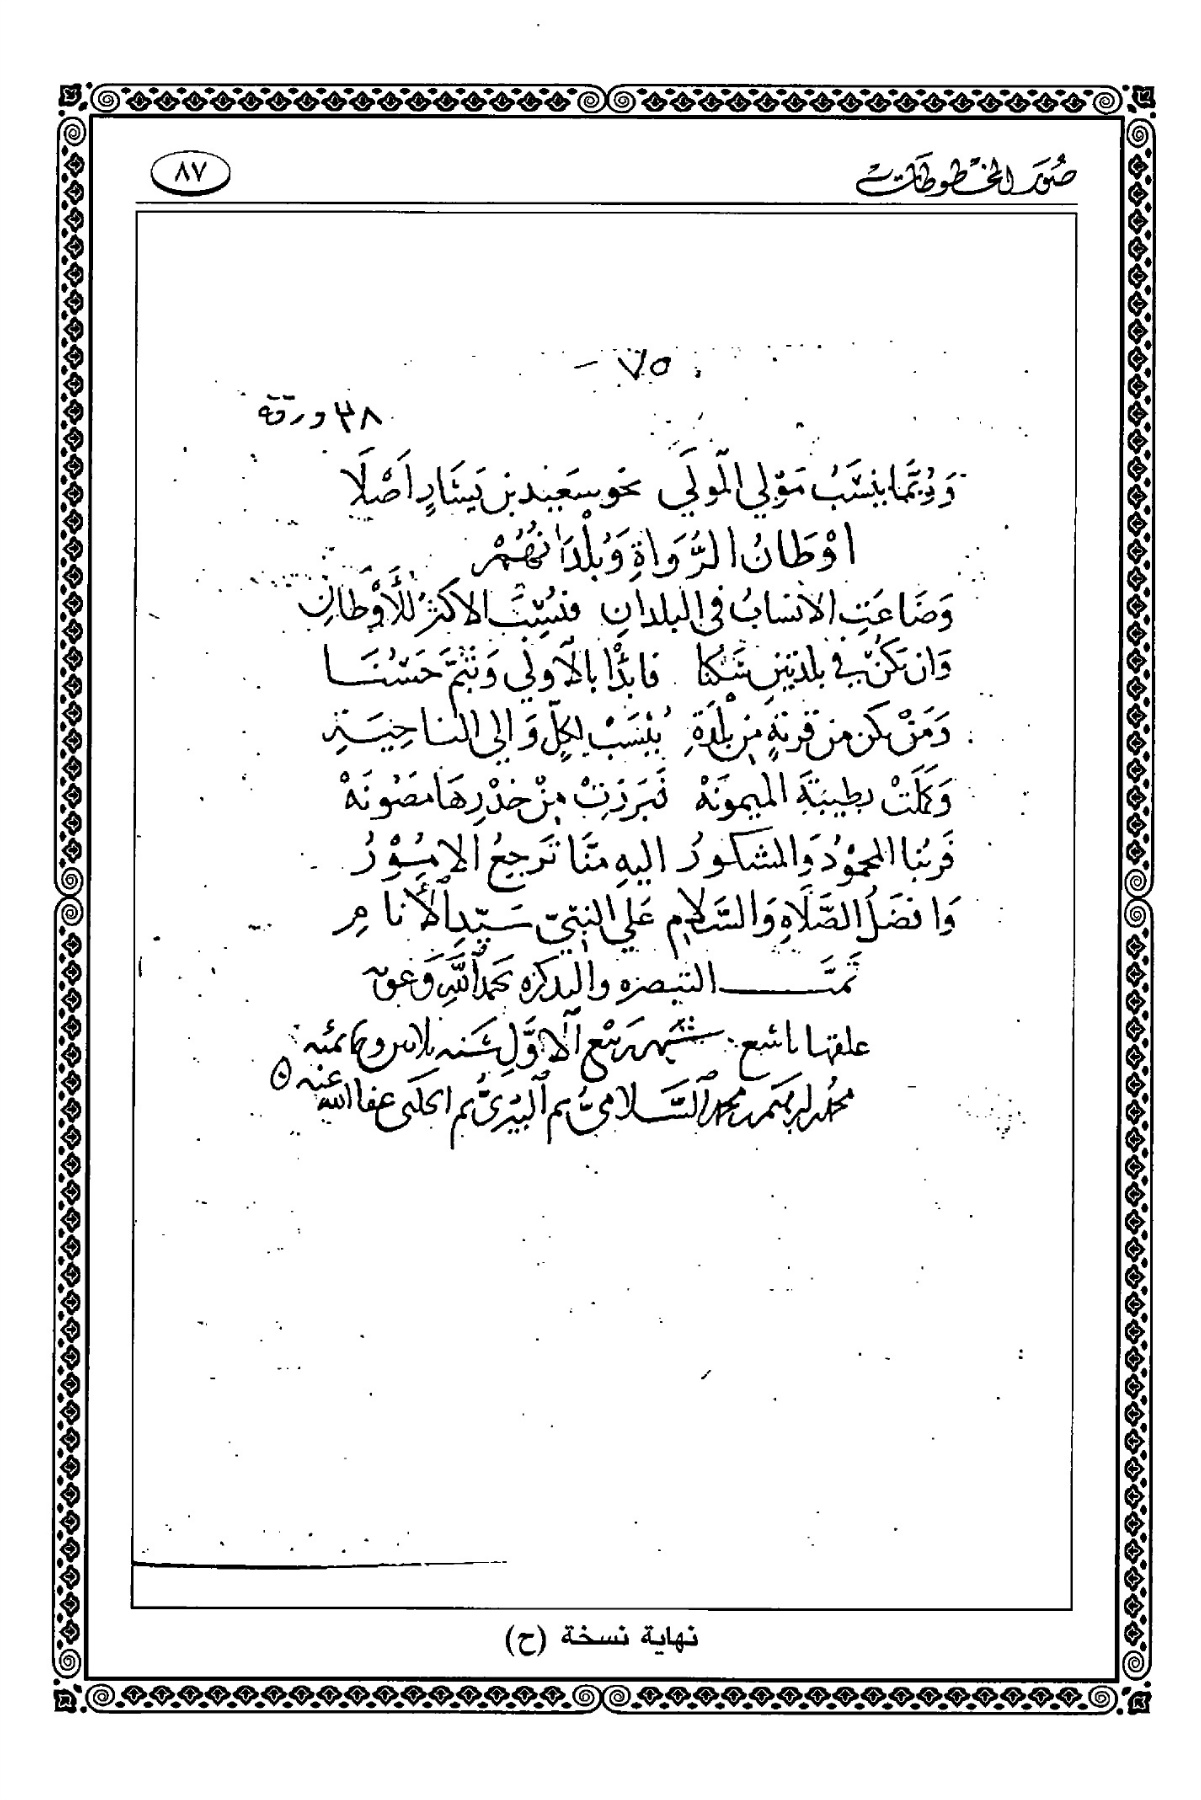 صور المخطوطات
٨٧
٧٥ -
٣٨ ورقة
وَرُبَّمَا يُنْسَبُ مَوْلي الْمَولَي نحو سَعِيْد بن يَسَارٍ اَصْلَا
اوْطَانُ الرُّوَاةِ وَبُلْدَانُهُمْ
وَضَاعَتِ الانْسابُ في البلدانِ فنُسِبَ الاكثَرُ للأَوْطَانِ
وَان يَكُنْ في بلدتينِ سَكَنا فَابْدَأْ بالأولَي وَبثُمَّ حَسُنَا
وَمَنْ يكن من قريةٍ مِن بَلْدَةِ يُنْسَبْ لِكلٍّ وَالى الناحِيَةِ
وَكَمَلَتْ بطيبَةَ الميمونَهْ فَبَرَزَتْ مِنْ خِدْرِهَا مَصُونَهْ
فَربُنا المحمُوْدُ وَالمشكورُ اليهِ مِنَّا تَرجعُ الامُوْرُ
وَافضَلُ الصَّلَاةِ وَالسَّلَامِ عَلي النبيّ سَيّدِ الأنامِ
تمَّت التبصره والتذكره بحمد اللهِ وَعونه
علقها تاسع شهر ربيع الاَوَّلِ سَنه ثلاث وثمانمئه
محمد محمد السَّلاميُّ ثم البيريُّ ثم الحلبى عفا الله عنه
نهاية نسخة (ح)